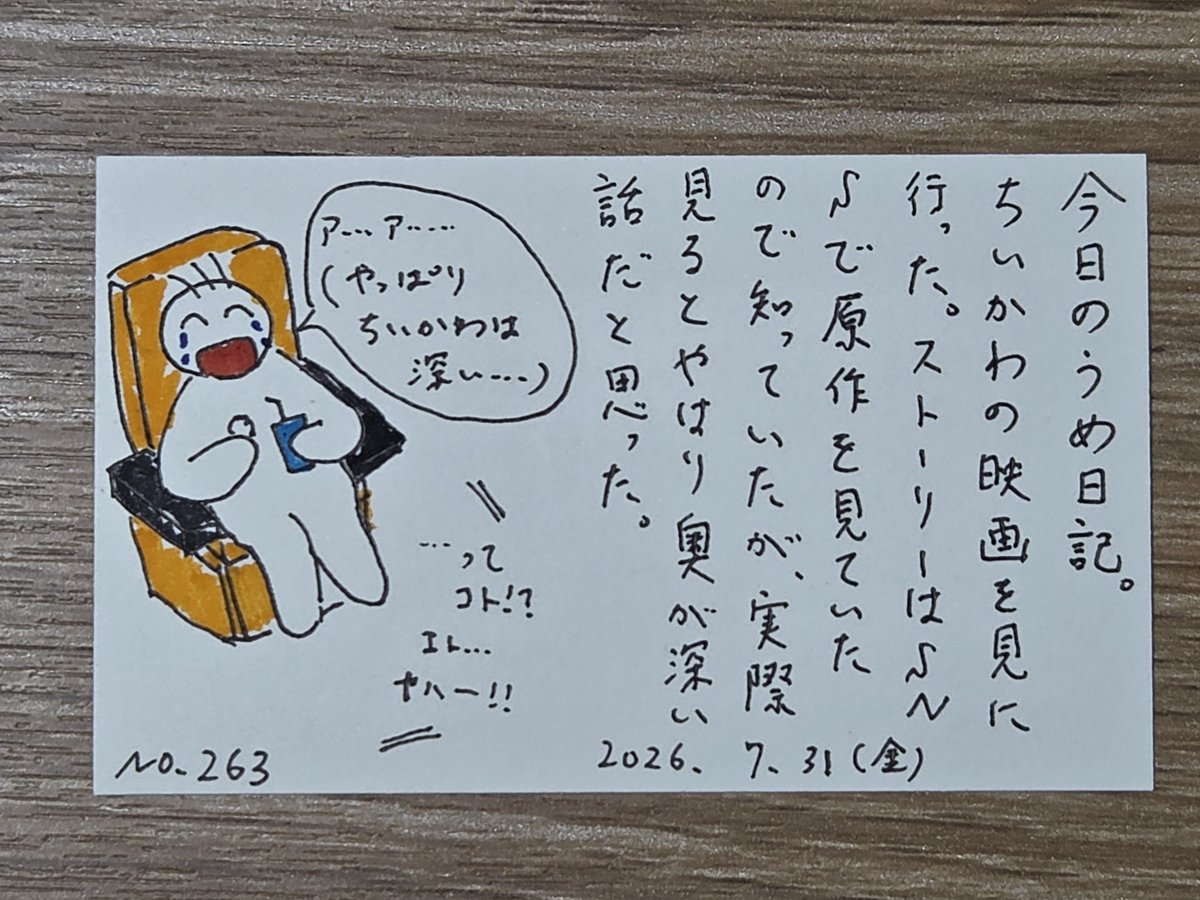 今日のうめ日記。
ちいかわの映画を見に
行った。ストーリーはSN
Sで原作を見ていた
ので知っていたが、実際
見るとやはり奥が深い
話だと思った。
ア…ア……
(やっぱり
ちいかわは
深い…)
…って
コト!?
エト…
ヤハー!!
No.263
2026.7.31(金)